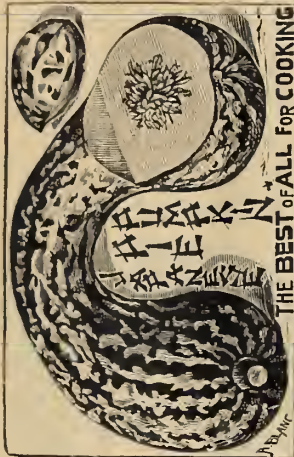 JAPANESE
PIE
PUMPKIN
THE BEST OF ALL FOR COOKING
A. BLANC